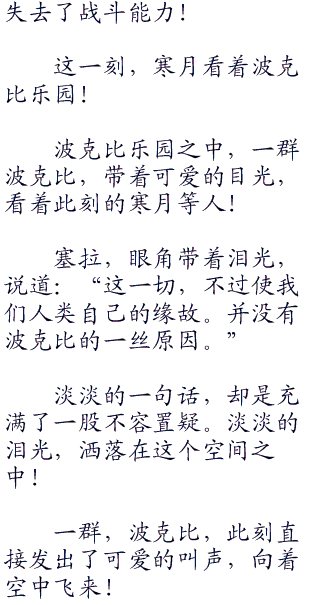 失去了战斗能力！
这一刻，寒月看着波克
比乐园！
波克比乐园之中，一群
波克比，带着可爱的目光，
看着此刻的寒月等人！
塞拉，眼角带着泪光，
说道：“这一切，不过使我
们人类自己的缘故。并没有
波克比的一丝原因。”
淡淡的一句话，却是充
满了一股不容置疑。淡淡的
泪光，洒落在这个空间之
中！
一群，波克比，此刻直
接发出了可爱的叫声，向着
空中飞来！